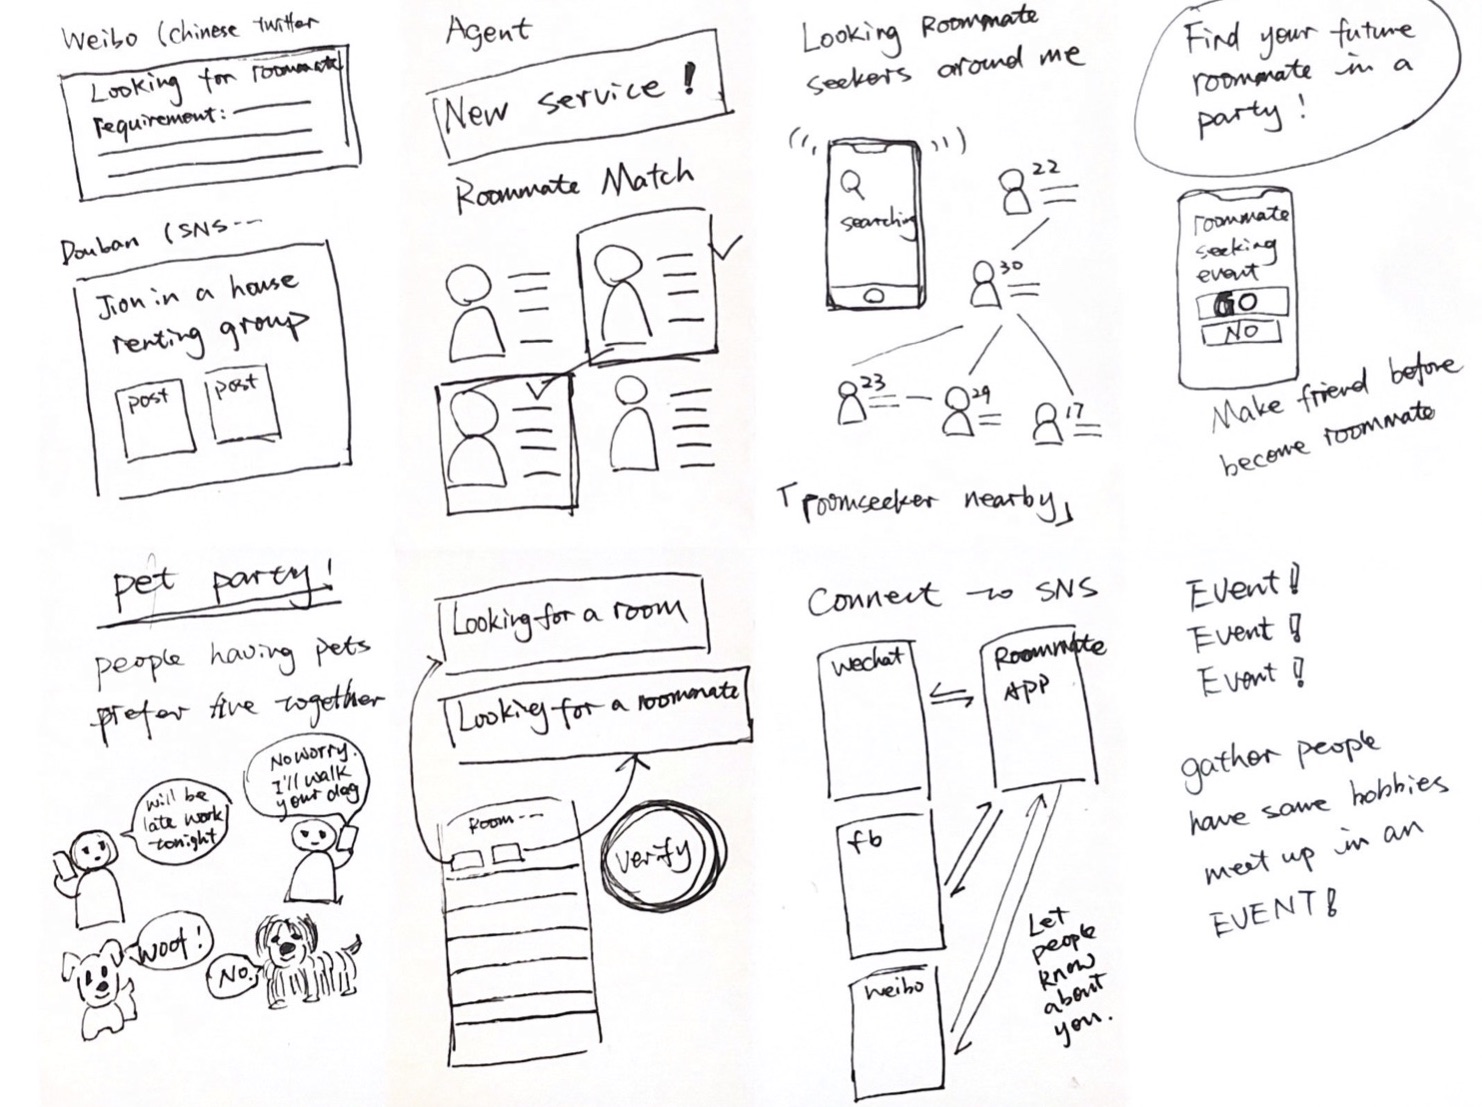 Weibo (Chinese twitter
Looking for roommate
requirement:
Douban (SNS---
Jion in a house
renting group
post
post
Agent
New service!
Roommate Match
Looking Roommate
seekers around me
searching
22
30
23
29
17
「roomseeker nearby」
Find your future
roommate in a
party!
roommate
seeking
event
GO
NO
Make friend before
become roommate
pet party!
people having pets
prefer live together
will be
late work
tonight
No worry.
I'll walk
your dog
woof!
No.
Looking for a room
Looking for a roommate
Room---
verify
Connect to SNS
wechat
Roommate
APP
fb
weibo
Let
people
know
about
you.
Event!
Event!
Event!
gather people
have same hobbies
meet up in an
EVENT!